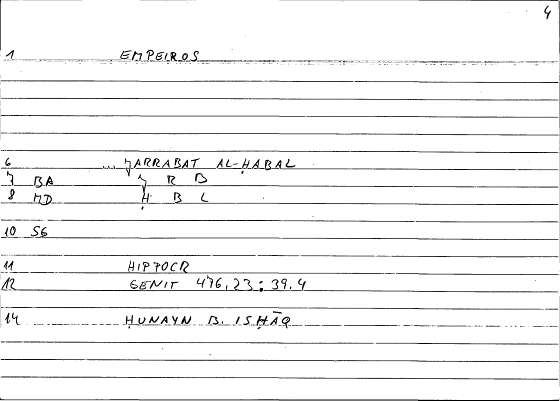 4
1 EMPEIROS
6 ... ǧARRABAT AL-ḤABAL
7 BA ǧ R B
8 MD Ḥ B L
10 S6
11 HIPPOCR
12 GENIT 476,23 : 39.4
14 ḤUNAYN B. ISḤĀQ